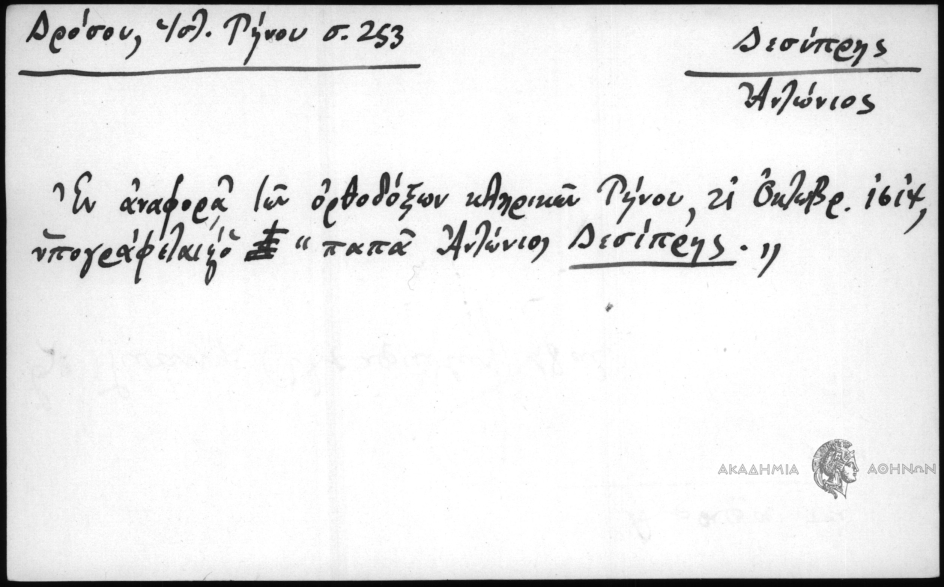 Δρόσου, Ἱστ. Τήνου σ. 253
Δεσύπρης
Ἀντώνιος
Ἐν ἀναφορᾷ τῶν ὀρθοδόξων κληρικῶν Τήνου, 21 Ὀκτωβρ. 1614,
ὑπογράφεται ὁ "παπᾶ Ἀντώνιος Δεσύπρης."
ΑΚΑΔΗΜΙΑ ΑΘΗΝΩΝ